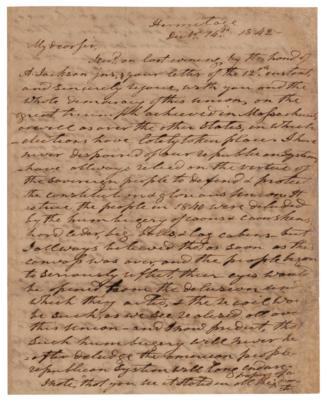 Hermitage
Decbr. 14th 1842—
My dear sir,
on last evening, by the hand of
A. Jackson jnr, your letter of the 12th instant
and sincerely rejoice, with you and the
whole democracy of this union, on the
great triumph achieved in Massachusetts
as well as over the other States, in which
elections have lately taken place. I have
never despaired of our republican system
have allways relied on the virtue of
the sovereign people to defend & protect
the constitution &
the people in 1840 were deluded
by the humbugery of coons, & coonskins,
hard cider, log cabins but
I allways believed that as soon as the
was over, and the people began
to seriously reflect their eyes would
be opened from the delusion under
which they acted, & the recoil would
be such, as we see realised all over
this union—and I now predict, that
such humbugery will never be
again delude the american people
republican system will long endure
I note, that you see it stated in